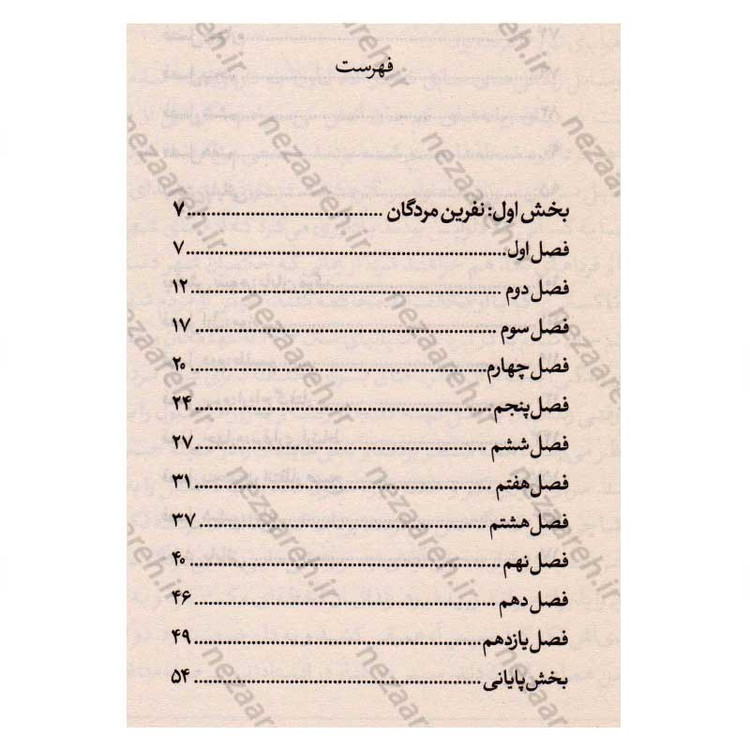 فهرست
بخش اول: نفرین مردگان ........................................ ۷
فصل اول ........................................ ۷
فصل دوم ........................................ ۱۲
فصل سوم ........................................ ۱۷
فصل چهارم ........................................ ۲۰
فصل پنجم ........................................ ۲۴
فصل ششم ........................................ ۲۷
فصل هفتم ........................................ ۳۱
فصل هشتم ........................................ ۳۷
فصل نهم ........................................ ۴۰
فصل دهم ........................................ ۴۶
فصل یازدهم ........................................ ۴۹
بخش پایانی ........................................ ۵۴
nezaareh.ir